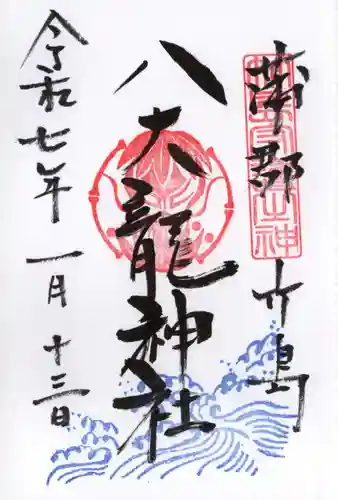 蒲郡 竹島
八大龍神社
令和七年 一月 十三日